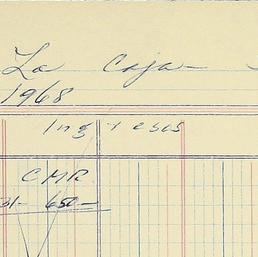 La Caja
1968
Ingresos
CMR
31- 650-